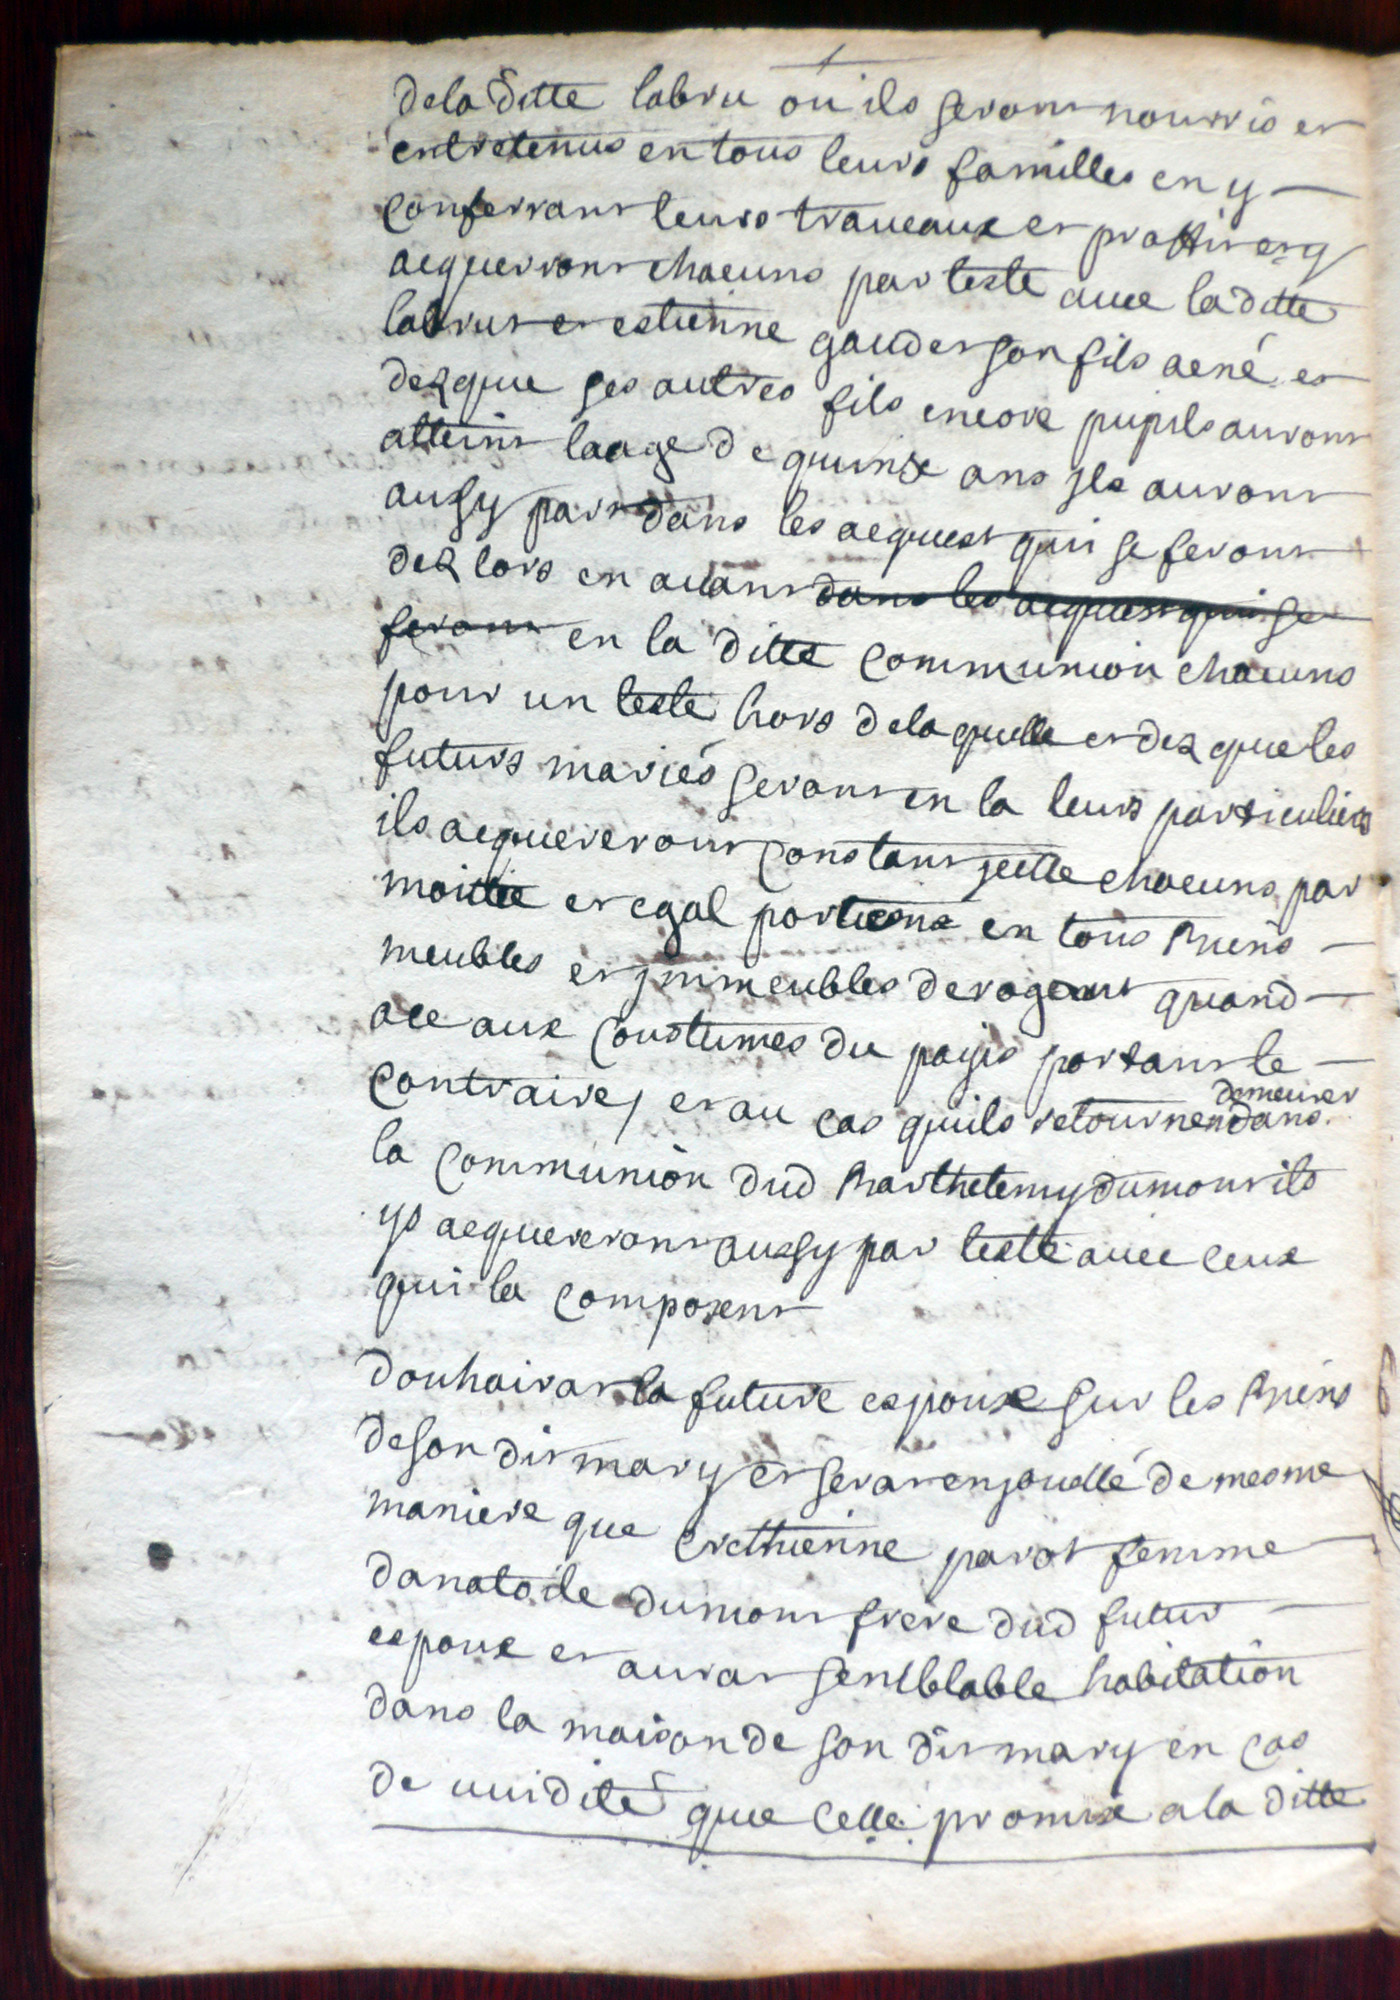 dela ditte labru ou ils seront nourris et
entretenus en tous leurs familles en y
conferrant leurs traveaux et proffit et y
acquerront chacuns par teste avec la ditte
labrut et estienne gaudet son fils aené et
dez que ses autres fils encore pupils auront
atteint laage de quinze ans ils auront
aussy part dans les acquest qui se feront
dez lors en avant dans les acquest qui se
feront en la ditte communion chacuns
pour un teste hors dela quelle et dez que les
futurs mariés seront en la leurs particuliers
ils acquereront constant icelle chacuns par
moittie et egal portions en tous biens
meubles et immeubles derogeant quand
ace aux coustumes du payis portant le
contraire, et au cas quils retournent demeurer dans
la communion dud barthelemy dumont ils
ys acquereront aussy par teste avec ceux
qui la composent
douhairat la future espouse sur les biens
de son dit mary et serat enjouellé de mesme
maniere que crethienne parot femme
danatoile dumont frere dud futur
espoux et aurat semblable habitation
dans la maison de son dit mary en cas
de viudité que celle promise ala ditte